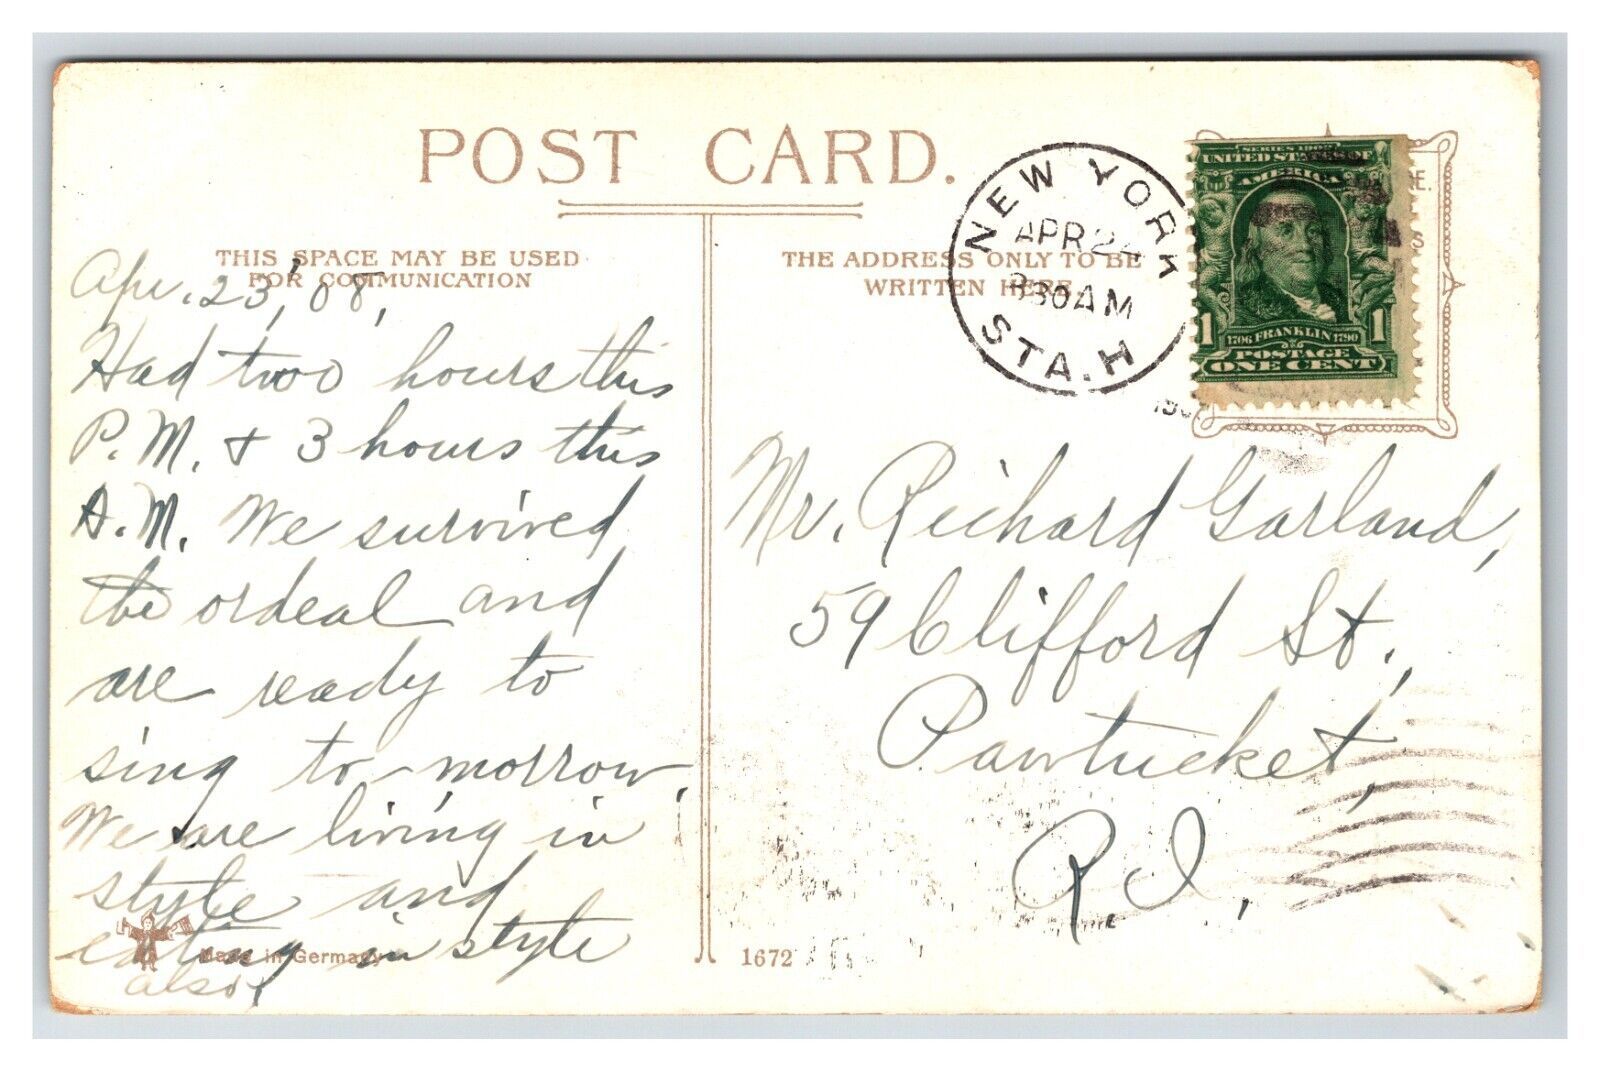 POST CARD.
THIS SPACE MAY BE USED
FOR COMMUNICATION
Apr. 23, '08,
Had two hours this
P.M. & 3 hours this
A.M. We survived
the ordeal and
are ready to
sing to-morrow.
We are living in
style and
eating in style
also.
Made in Germany
THE ADDRESS ONLY TO BE
WRITTEN HERE.
NEW YORK
APR 24
830AM
STA. H
SERIES 1902
UNITED STATES OF
AMERICA
1 1
1706 FRANKLIN 1790
POSTAGE
ONE CENT
Mr. Richard Garland,
59 Clifford St.,
Pawtucket,
R.I.,
1672